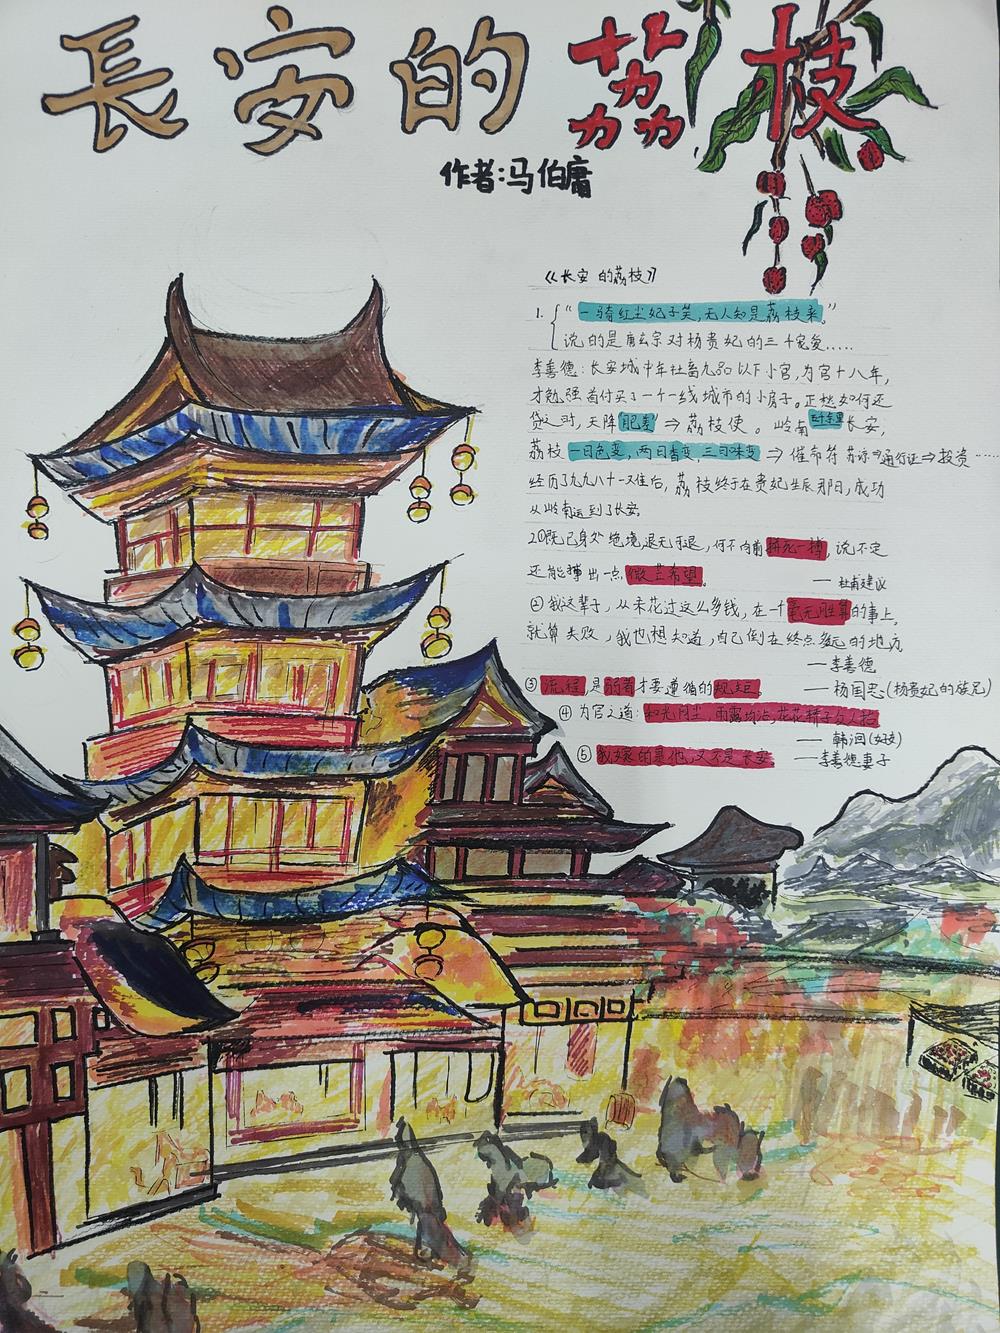 長安的荔枝
作者:马伯庸
《长安的荔枝》
1.“一骑红尘妃子笑,无人知是荔枝来。”
说的是唐玄宗对杨贵妃的三千宠爱.....
李善德:长安城中年社畜九品以下小官,为官十八年,
才勉强首付买了一个一线城市的小房子。正愁如何还
贷之时,天降“肥差”⇒荔枝使。岭南 长安,
荔枝一日色变,两日香变,三日味变⇒ ⇒通行证⇒投资……
经历了九九八十一难后,荔枝终于在贵妃生辰那日,成功
从岭南运到了长安。
2.①既已身处绝境退无可退,何不向前拼死一搏,说不定
还能搏出一点微茫希望。
—杜甫建议
②我这辈子,从未花过这么多钱,在一个毫无胜算的事上,
就算失败,我也想知道,自己倒在终点多远的地方
—李善德
③流程,是弱者才要遵循的规矩。 —杨国忠(杨贵妃的族兄)
④为官之道:和光同尘,雨露均沾,花花轿子众人抬
—韩洄(好友)
⑤我嫁的是他,又不是长安 —李善德妻子